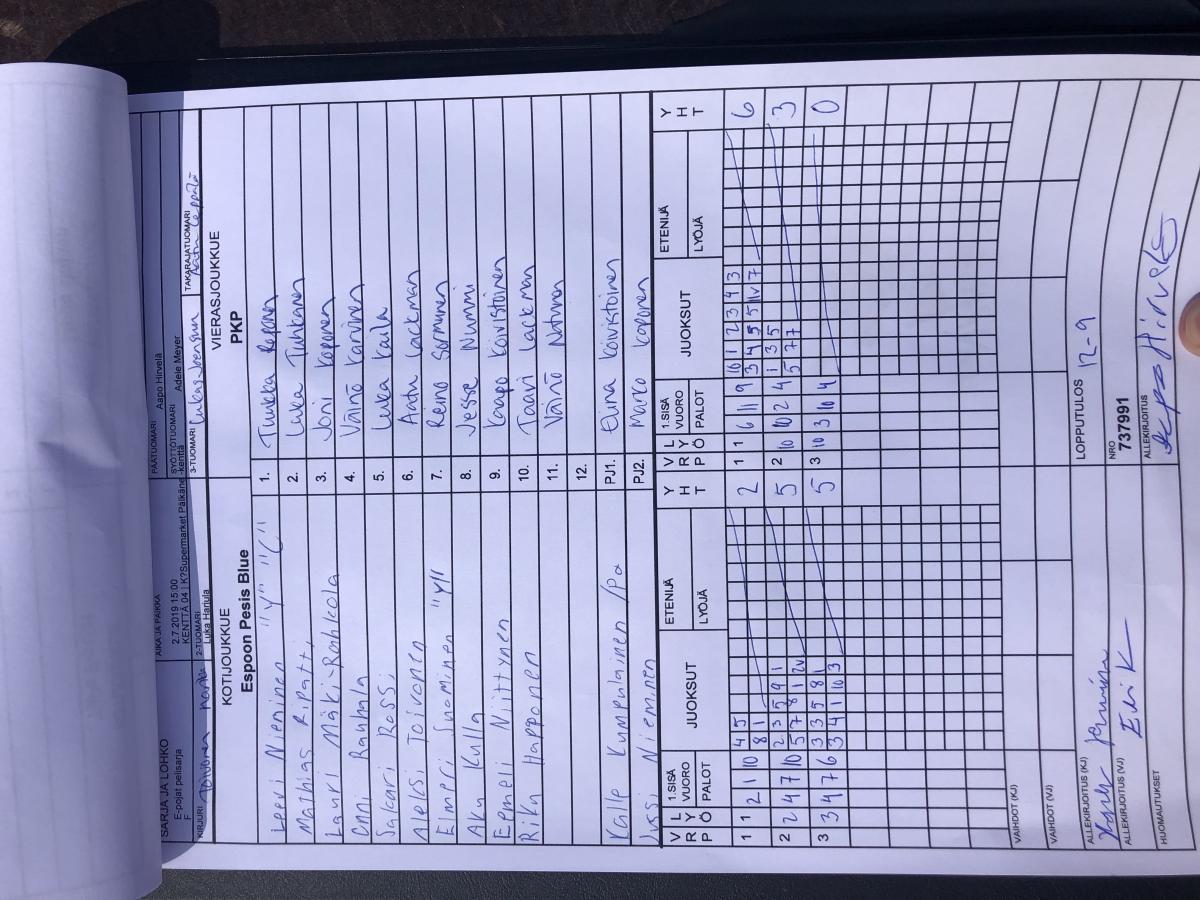 SARJA JA LOHKO
E-pojat pelisarja
F
AIKA JA PAIKKA
2.7.2019 15:00
KENTTÄ 04 | K?Supermarket Pälkäne -kenttä
PÄÄTUOMARI Aapo Hirvelä
SYÖTTÖTUOMARI Adele Meyer
KIRJURI
2-TUOMARI Luka Harjula
3-TUOMARI Lukas Joensuu
TAKARAJATUOMARI Aatu Leppälä
KOTIJOUKKUE VIERASJOUKKUE
Espoon Pesis Blue PKP
Leevi Nieminen "Y" "C" 1. Tuukka Koponen
Mathias Ripatti 2. Luka Turkanen
Lauri Mäki-Rahkola 3. Joni Koponen
Onni Rauhala 4. Väinö Karvinen
Sakari Rossi 5. Luka Kaila
Aleksi Toivonen 6. Aatu Lackman
Elmeri Suominen "Y" 7. Reino Sormunen
Aku Kulla 8. Jesse Nummi
Eemeli Niittynen 9. Kaapo Koivistoinen
Riku Happonen 10. Taavi Lackman
11. Väinö Nutunen
12.
Kalle Kumpulainen /Pa PJ1. Eina Koivistoinen
Jussi Nieminen PJ2. Marco Koponen
V R P L Y Ö 1.SISÄ VUORO PALOT JUOKSUT ETENIJÄ LYÖJÄ Y H T V R P L Y Ö 1.SISÄ VUORO PALOT JUOKSUT ETENIJÄ LYÖJÄ Y H T
1 1 2 1 10 4 5 2 1 1 6 11 9 10 1 2 3 4 3 6
8 1 3 4 5 5 1V 7
2 2 4 7 10 2 3 5 9 1 5 2 10 10 2 4 1 3 5 3
5 7 8 1 2V 5 7 7
3 3 4 7 6 3 3 5 8 1 5 3 10 3 10 4 0
3 4 1 10 3
VAIHDOT (KJ)
VAIHDOT (VJ)
ALLEKIRJOITUS (KJ)
LOPPUTULOS 12-9
ALLEKIRJOITUS (VJ)
NRO
737991
HUOMAUTUKSET
ALLEKIRJOITUS Aapo Hirvelä